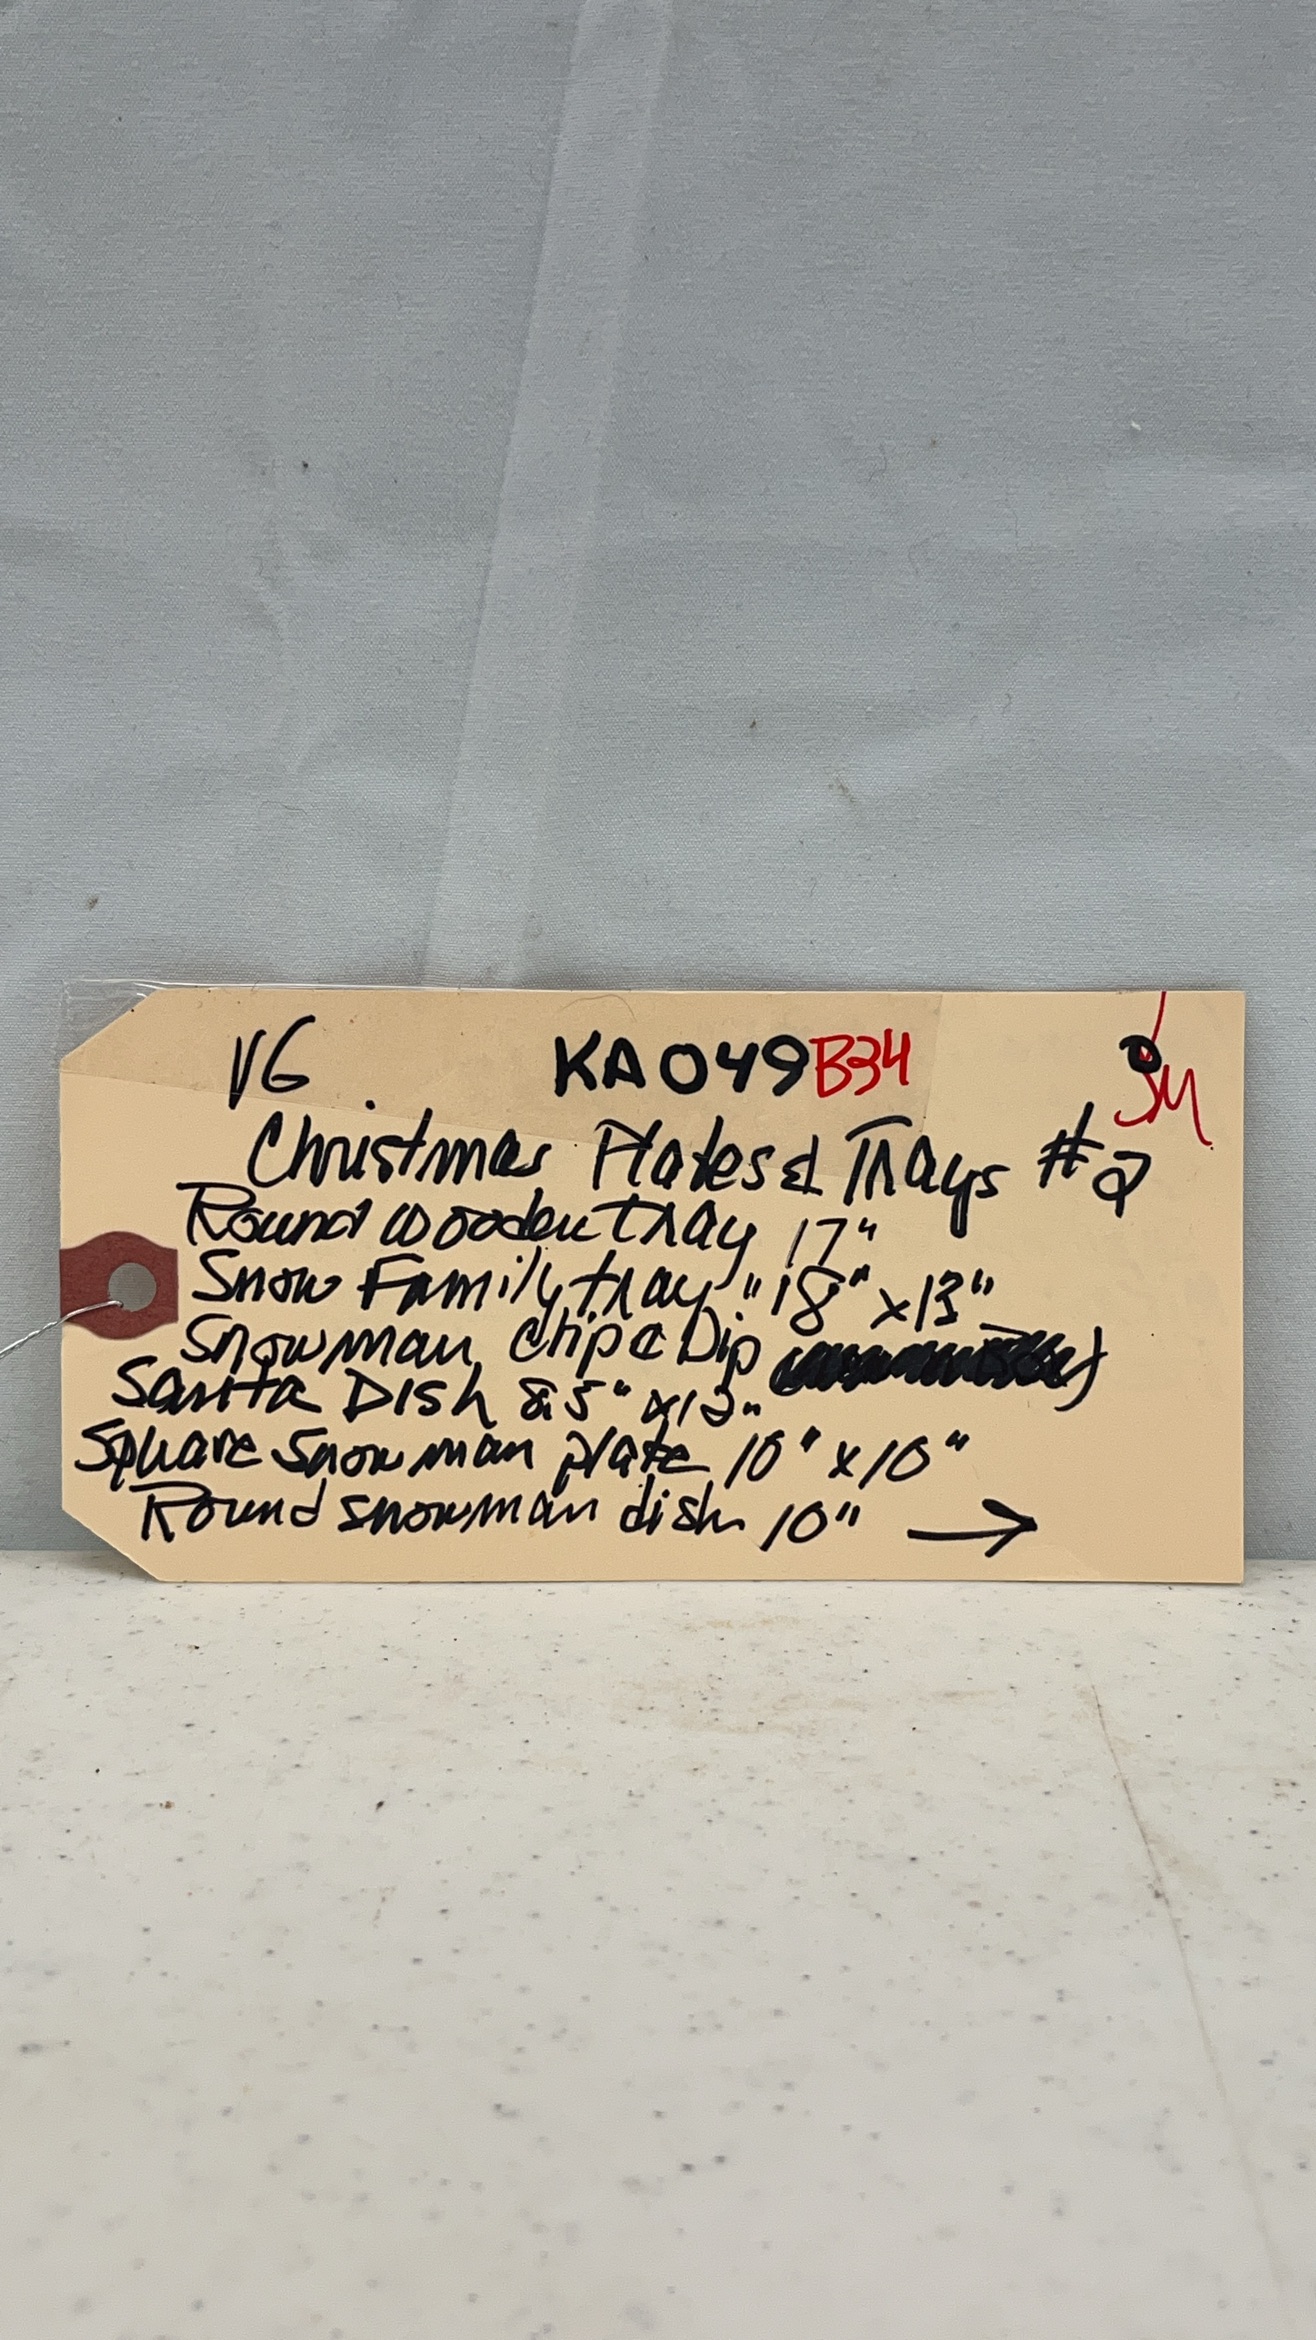 VG KA049 B34 JM
Christmas Plates & Trays #2
Round wooden tray 17"
Snow Family tray "18" x 13"
Snowman Chip & Dip
Santa Dish 8.5" x 12"
Square snowman plate 10" x 10"
Round snowman dish 10" →